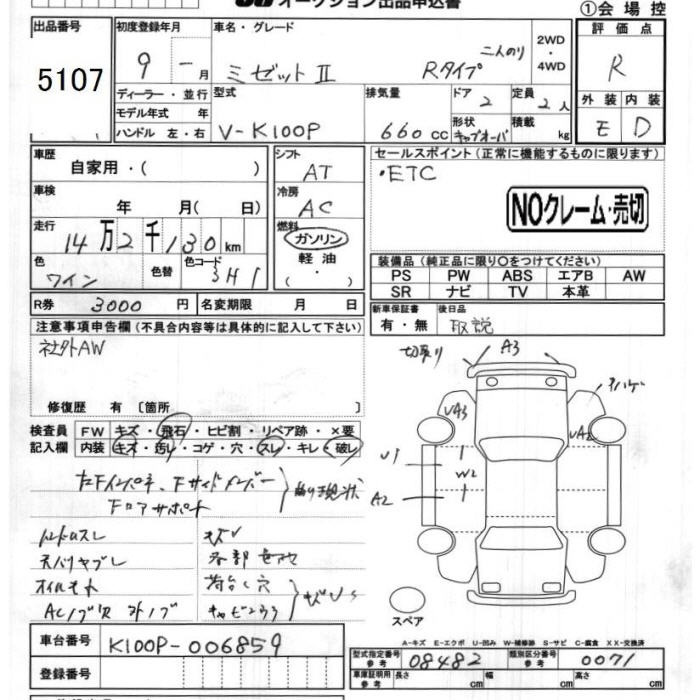 オークション出品申込書
①会場控
出品番号
5107
初度登録年月
9 - 月
車名・グレード
ミゼットⅡ Rタイプ 二人のり
2WD
・
4WD
評価点
R
ディーラー・並行
モデル年式 年
ハンドル 左・右
型式
V-K100P
排気量
660 cc
ドア
2
定員
2 人
形状
キャブオーバ
積載
kg
外装 内装
E D
車歴
自家用・( )
シフト
AT
車検
年 月( 日)
冷房
AC
走行
14万2千130km
燃料
ガソリン
軽油
( ・ )
色
ワイン
色替
色コード
3H1
R券 3000 円
名変期限 月 日
セールスポイント(正常に機能するものに限ります)
・ETC
NOクレーム・売切
装備品(純正品に限り○をつけてください)
PS PW ABS エアB AW
SR ナビ TV 本革
新車保証書
有・無
後日品
取説
注意事項申告欄(不具合内容等は具体的に記入して下さい)
社外AW
修復歴 有〔箇所 〕
検査員
記入欄
FW キズ・飛石・ヒビ割・リペア跡・×要
内装 キズ・汚レ・コゲ・穴・スレ・キレ・破レ
切取り
A3
UA3
UA2
U1
W2
A2
スペア
オイルモレ
荷台く穴
A-キズ E-エクボ U-凹み W-補修跡 S-サビ C-腐食 XX-交換済
車台番号
K100P-006859
登録番号
型式指定番号
参考
08482
類別区分番号
参考
0071
車庫証明用
参考
長さ cm
幅 cm
高さ cm